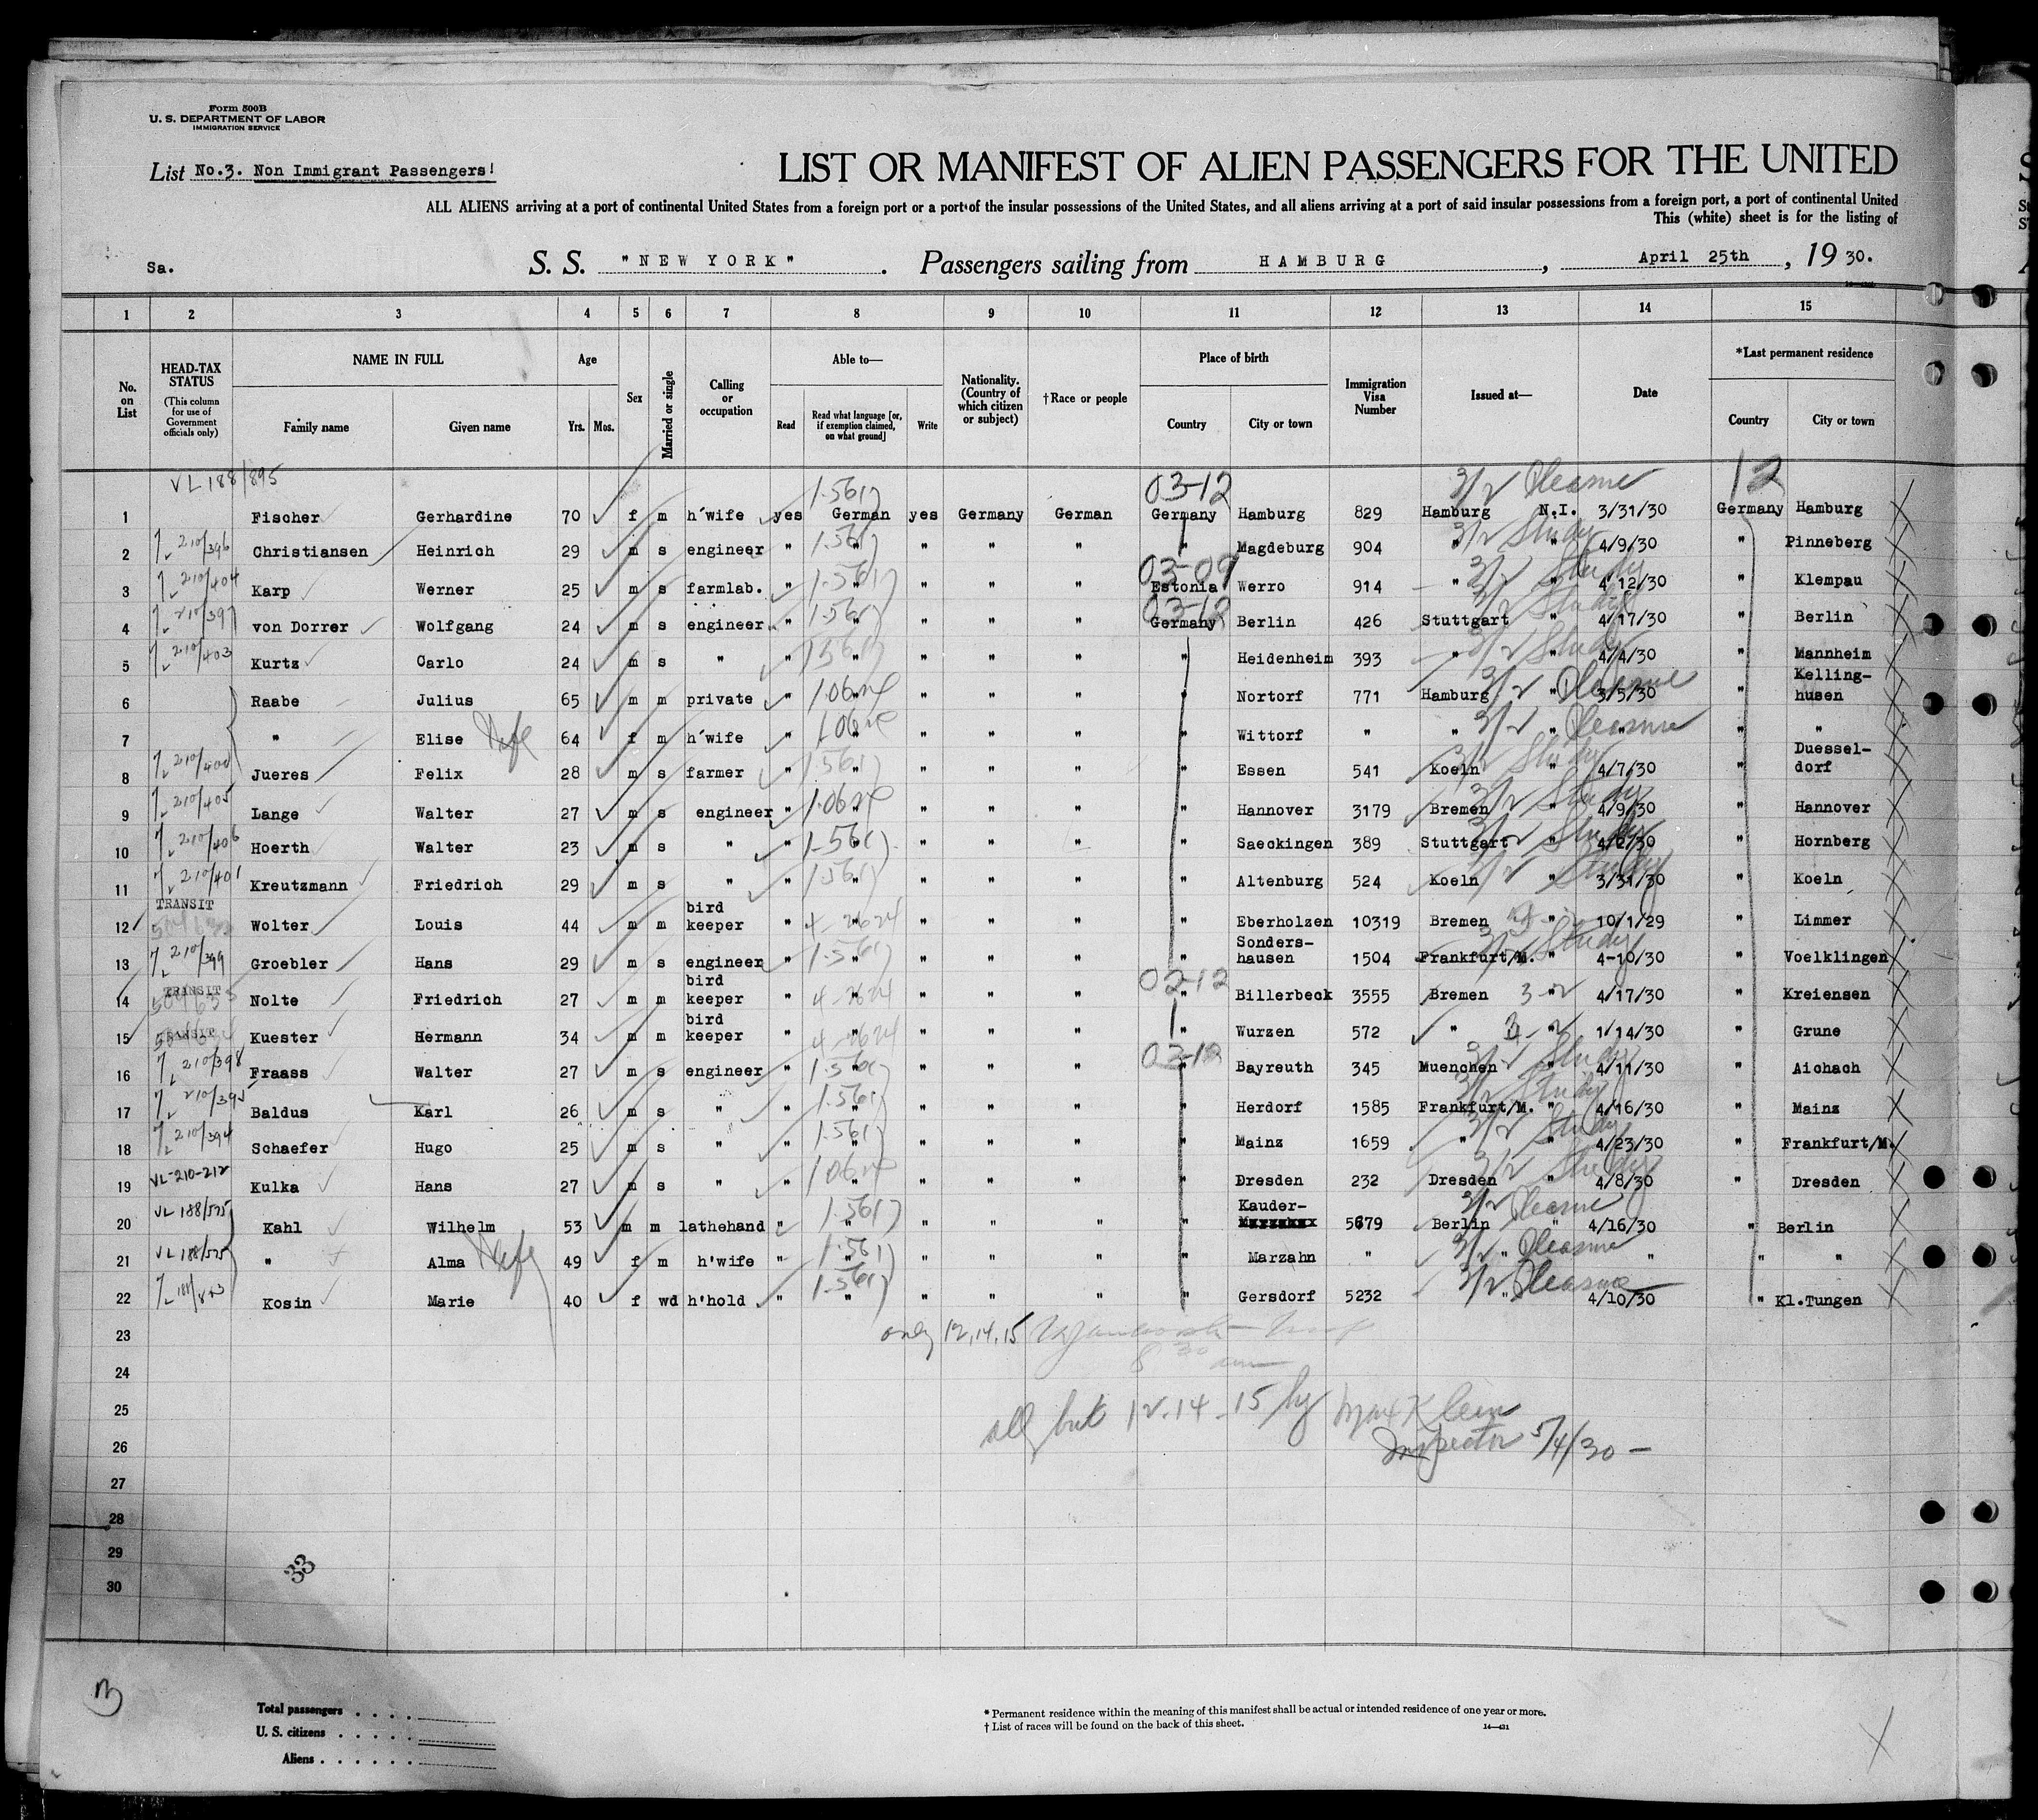 Form 500B
U. S. DEPARTMENT OF LABOR
IMMIGRATION SERVICE
List No.3. Non Immigrant Passengers!
LIST OR MANIFEST OF ALIEN PASSENGERS FOR THE UNITED
ALL ALIENS arriving at a port of continental United States from a foreign port or a port of the insular possessions of the United States, and all aliens arriving at a port of said insular possessions from a foreign port, a port of continental United
This (white) sheet is for the listing of
Sa. S. S. "NEW YORK" . Passengers sailing from HAMBURG , April 25th , 19 30.
1 2 3 4 5 6 7 8 9 10 11 12 13 14 15
No. on List
HEAD-TAX STATUS (This column for use of Government officials only)
NAME IN FULL Family name Given name
Age Yrs. Mos.
Sex
Married or single
Calling or occupation
Able to— Read Read what language [or, if exemption claimed, on what ground] Write
Nationality. (Country of which citizen or subject)
†Race or people
Place of birth Country City or town
Immigration Visa Number
Issued at—
Date
*Last permanent residence Country City or town
VL 188/895 1-5617 03-12 3/2 Pleasure 12
1 Fischer Gerhardine 70 f m h'wife yes German yes Germany German Germany Hamburg 829 Hamburg N.I. 3/31/30 Germany Hamburg
210/396 1-5617 3/2 Study
2 Christiansen Heinrich 29 m s engineer " " " " " " Magdeburg 904 " " 4/9/30 " Pinneberg
210/404 1-5617 03-09 3/2 Study
3 Karp Werner 25 m s farmlab. " " " " " Estonia Werro 914 " " 4/12/30 " Klempau
210/397 1-5617 03-12 3/2 Study
4 von Dorrer Wolfgang 24 m s engineer " " " " " Germany Berlin 426 Stuttgart " 4/17/30 " Berlin
210/403 1-5617 3/2 Study
5 Kurtz Carlo 24 m s " " " " " " " Heidenheim 393 " " 4/4/30 " Mannheim
3/2 Pleasure
6 Raabe Julius 65 m m private " " " " " " Nortorf 771 Hamburg " 3/5/30 " Kelling-
husen
3/2 Pleasure
7 " Elise Wife 64 f m h'wife " " " " " " Wittorf " " " " " "
210/400 1-5617 3/2 Study
8 Jueres Felix 28 m s farmer " " " " " " Essen 541 Koeln " 4/7/30 " Duessel-
dorf
210/405 3/2 Study
9 Lange Walter 27 m s engineer " " " " " " Hannover 3179 Bremen " 4/9/30 " Hannover
210/406 1-5617 3/2 Study
10 Hoerth Walter 23 m s " " " " " " " Saeckingen 389 Stuttgart " 4/2/30 " Hornberg
210/401 1-5617 3/2 Study
11 Kreutzmann Friedrich 29 m s " " " " " " " Altenburg 524 Koeln " 3/31/30 " Koeln
TRANSIT
12 Wolter Louis 44 m m bird keeper " " " " " " Eberholzen 10319 Bremen " 10/1/29 " Limmer
210/399 1-5617 3/2 Study
13 Groebler Hans 29 m s engineer " " " " " " Sonders-
hausen 1504 Frankfurt/M. " 4-10/30 " Voelklingen
TRANSIT 02-12
14 Nolte Friedrich 27 m m bird keeper " " " " " " Billerbeck 3555 Bremen 3-2 " 4/17/30 " Kreiensen
TRANSIT
15 Kuester Hermann 34 m m bird keeper " " " " " " Wurzen 572 " " 1/14/30 " Grune
210/398 1-5617 03-12 3/2 Study
16 Fraass Walter 27 m s engineer " " " " " " Bayreuth 345 Muenchen " 4/11/30 " Aichach
210/395 1-5617 3/2 Study
17 Baldus Karl 26 m s " " " " " " " Herdorf 1585 Frankfurt/M. " 4/16/30 " Mainz
210/394 1-5617 3/2 Study
18 Schaefer Hugo 25 m s " " " " " " " Mainz 1659 " " 4/23/30 " Frankfurt/M.
VL-210-212 3/2 Study
19 Kulka Hans 27 m s " " " " " " " Dresden 232 Dresden " 4/8/30 " Dresden
VL 188/575 1-5617 3/2 Pleasure
20 Kahl Wilhelm 53 m m lathehand " " " " " " Kauder-
5679 Berlin " 4/16/30 " Berlin
VL 188/575 1-5617 3/2 Pleasure
21 " Alma Wife 49 f m h'wife " " " " " " Marzahn " " " " "
1-5617 3/2 Pleasure
22 Kosin Marie 40 f wd h'hold " " " " " " Gersdorf 5232 " 4/10/30 " Kl.Tungen
23 only 12, 14, 15
24 8 30 am
25 all but 12-14-15 by Max Klein
26 Inspector 5/4/30 -
27
28
29
30
33
Total passengers . . . .
U. S. citizens . . . . .
Aliens . . . . . .
* Permanent residence within the meaning of this manifest shall be actual or intended residence of one year or more.
† List of races will be found on the back of this sheet. 14—431